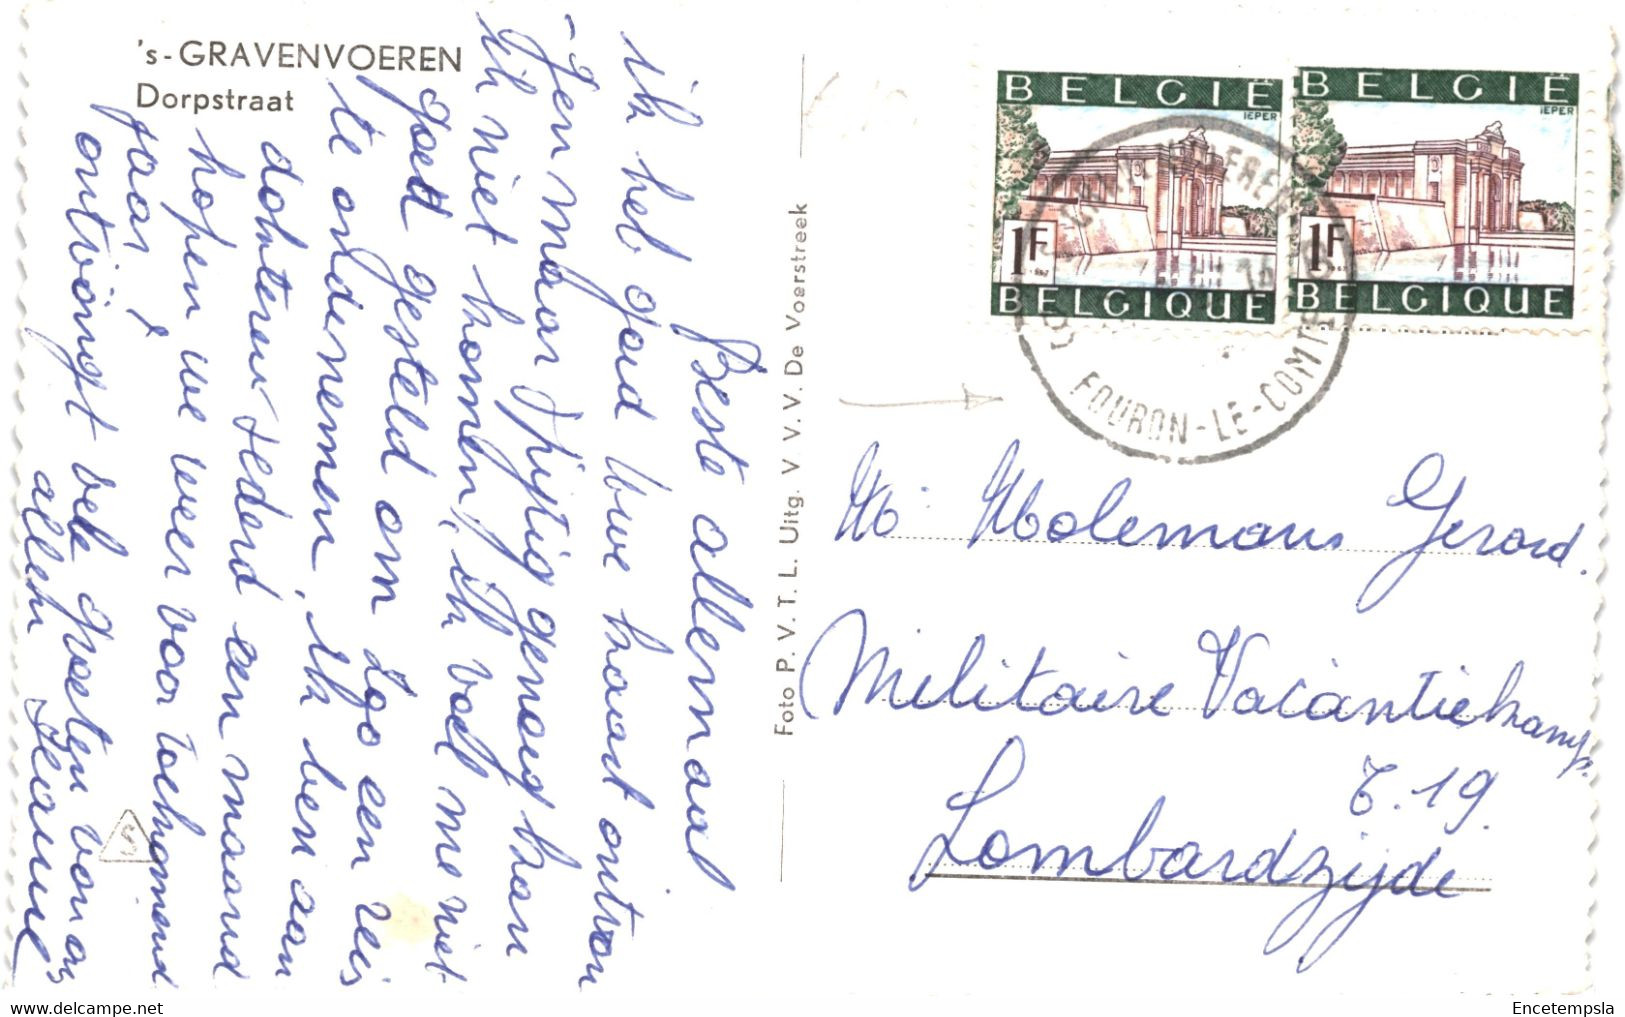 's-GRAVENVOEREN
Dorpstraat
Beste allemaal
ik heb goed uwe kaart ontvan
-gen maar spijtig genoeg kan
ik niet komen, ik voel me niet
goed gesteld om zoo een reis
te ondernemen, ik ben aan
dokteren sederd een maand
hopen we weer voor toekomend
jaar,
ontvangt vele groeten van ons
allen Jeanne
Foto P. V. T. L. Uitg. V. V. V. De Voerstreek
BELGIË
IEPER
1F
1967
BELGIQUE
BELGIË
IEPER
1F
1967
BELGIQUE
FOURON-LE-COMTE
Mr Moolemans Gerard.
Militaire Vacantiekamp.
T.19.
Lombardzijde
www.delcampe.net
Encetempsla